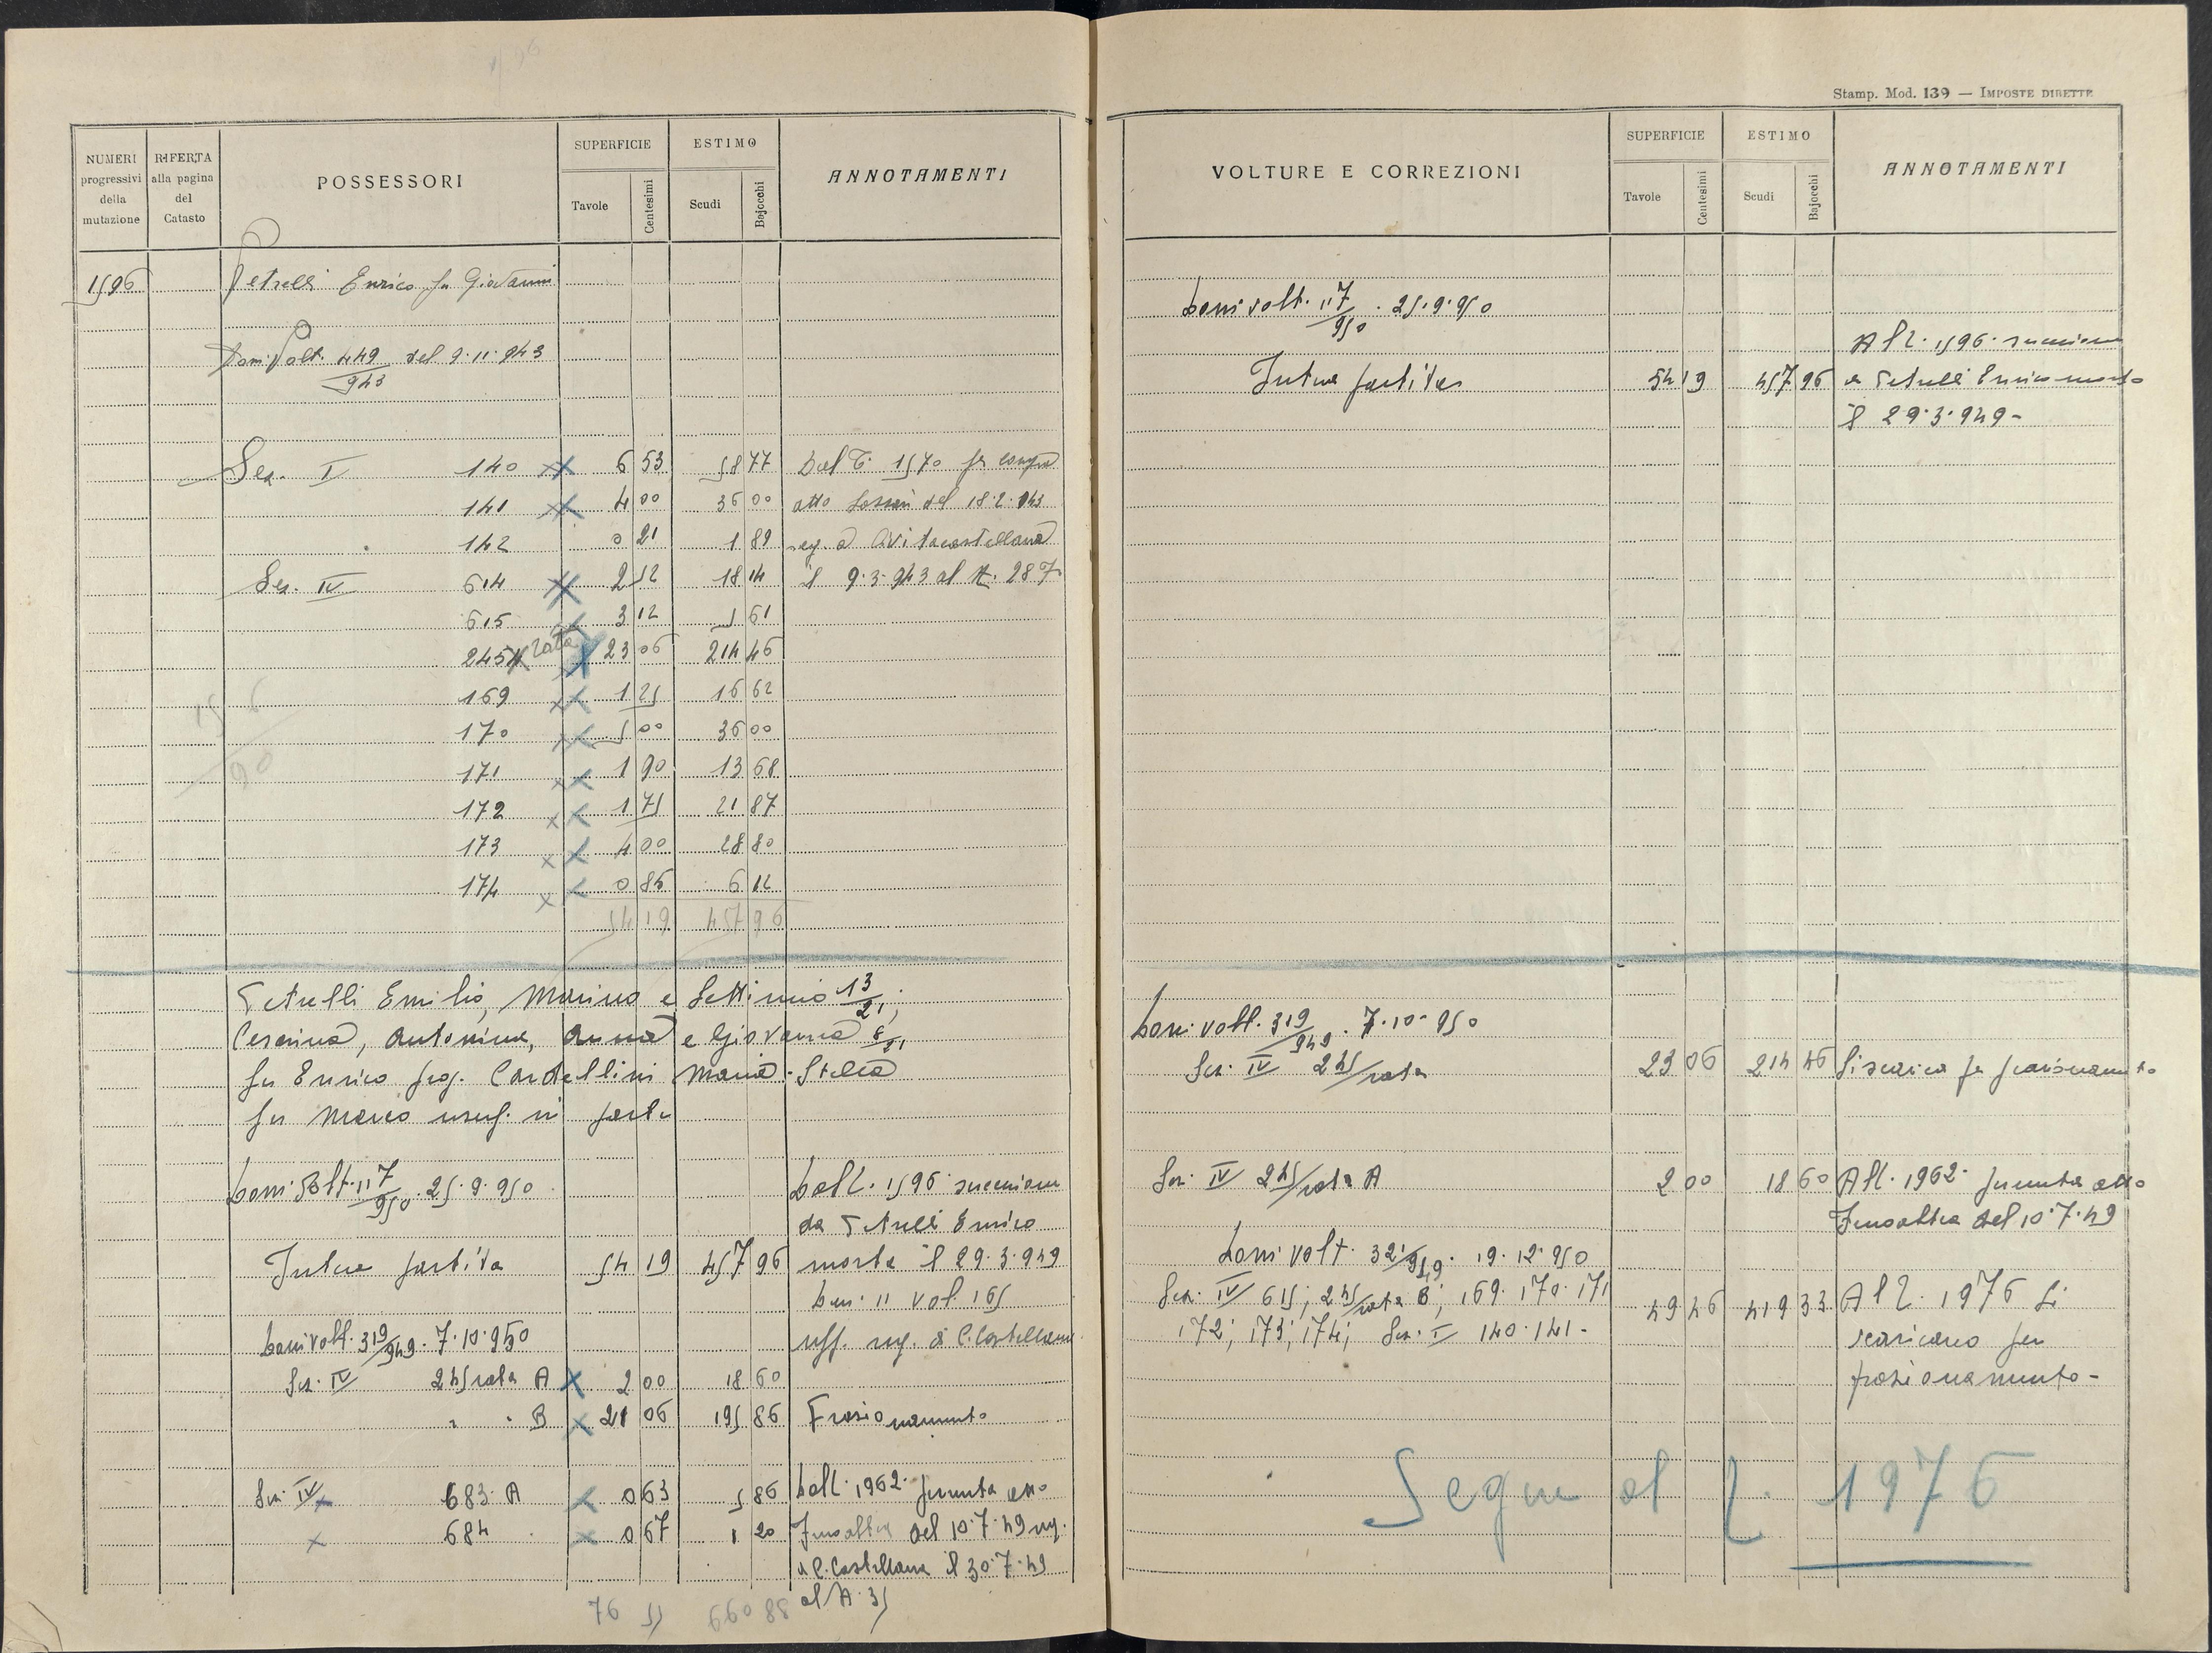 Stamp. Mod. 139 — IMPOSTE DIRETTE
NUMERI progressivi della mutazione
RIFERTA alla pagina del Catasto
POSSESSORI
SUPERFICIE
Tavole
Centesimi
ESTIMO
Scudi
Bajocchi
ANNOTAMENTI
1596 Petrelli Enrico fu Giovanni
Dom. Volt. 449/943 del 9.11.943
Sez. I 140 6 53 58 77 Dal T. 1570 per compra
141 4 00 36 00 atto del 18.2.943
142 0 21 1 89 reg. a Civitacastellana
Sez. IV 614 2 52 18 14 il 9.3.943 al N. 287
615 3 12 5 61
245 rata 23 06 214 46
169 1 25 16 62
170 5 00 36 00
171 1 90 13 68
172 1 75 21 87
173 4 00 28 80
174 0 85 6 12
54 19 457 96
Petrelli Emilio, Marino e Settimio 13/21;
Cesarina, Antonina, Anna e Giovanna 8/21
fu Enrico prop. Cardellini Maria Stella
fu Marco usuf. in parte
Dom. Volt. 117/950. 25.9.950 Dal T. 1596 successione
da Petrelli Enrico
Intera partita 54 19 457 96 morto il 29.3.949
Den. 11 vol. 165
Dom. Volt. 319/949. 7.10.950 uff. reg. di C. Castellana
Sez. IV 245 rata A 2 00 18 60
" " B 21 06 195 86 Frazionamento
Sez. IV 683 A 0 63 5 86 Dal T. 1962 permuta atto
684 0 67 1 20 del 10.7.49 reg.
a C. Castellana il 30.7.49
al N. 35
VOLTURE E CORREZIONI
SUPERFICIE
Tavole
Centesimi
ESTIMO
Scudi
Bajocchi
ANNOTAMENTI
Dom. volt. 117/950. 25.9.950
Al T. 1596 successione
Intera partita 54 19 457 96 a Petrelli Enrico morto
il 29.3.949-
Dom. volt. 319/949. 7.10.950
Sez. IV 245/rata 23 06 214 46 Si scarica per frazionamento
Sez. IV 245/rata A 2 00 18 60 Al T. 1962 permuta atto
del 10.7.49
Dom. volt. 321/949. 19.12.950
Sez. IV 615; 245/rata B; 169. 170. 171 49 46 419 33 Al T. 1976 Si
172; 173; 174; Sez. I 140. 141- scaricano per
frazionamento-
Segue al T. 1976